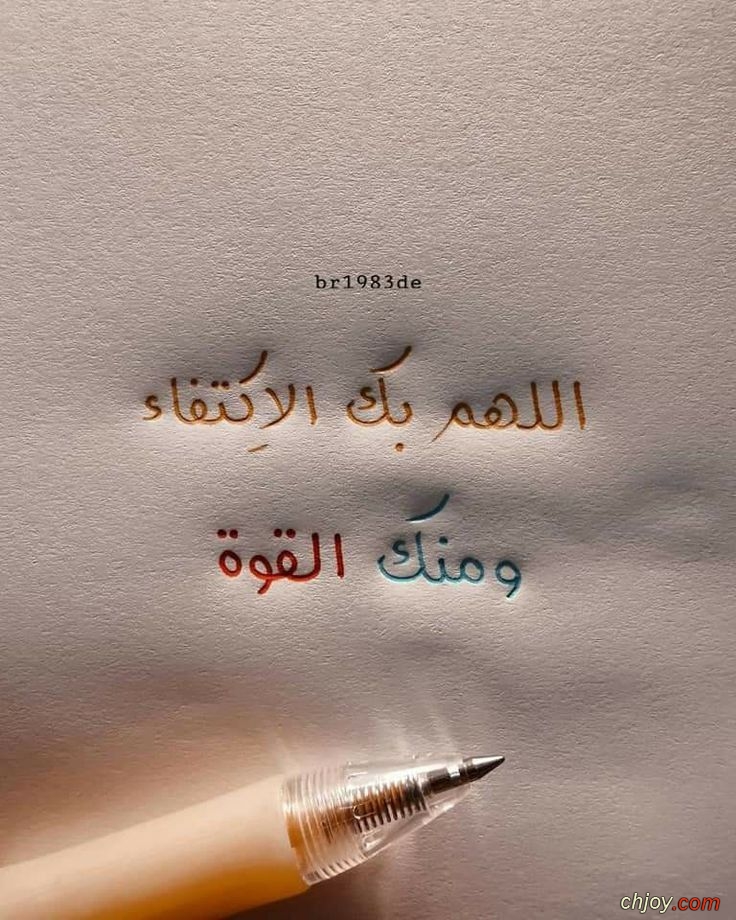 br1983de
اللهم بك الاِكتفاء
ومنك القوة
chjoy.com